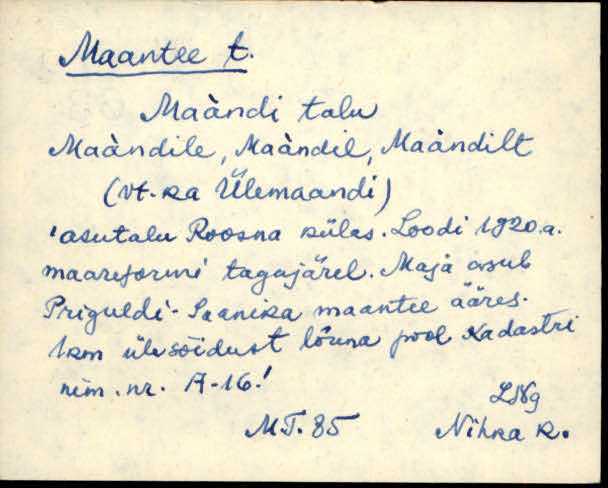 Maantee t.
Maàndi talu
Maàndile, Maàndil, Maàndilt
(vt. ka Ülemaandi)
'asutalu Roosna külas. Loodi 1920.a.
maareformi tagajärel. Maja asub
Priguldi - Saanika maantee ääres.
1km ülesõidust lõuna pool Kadastri
nim. nr. A-16.'
LNg
M.T. 85 Nihka k.